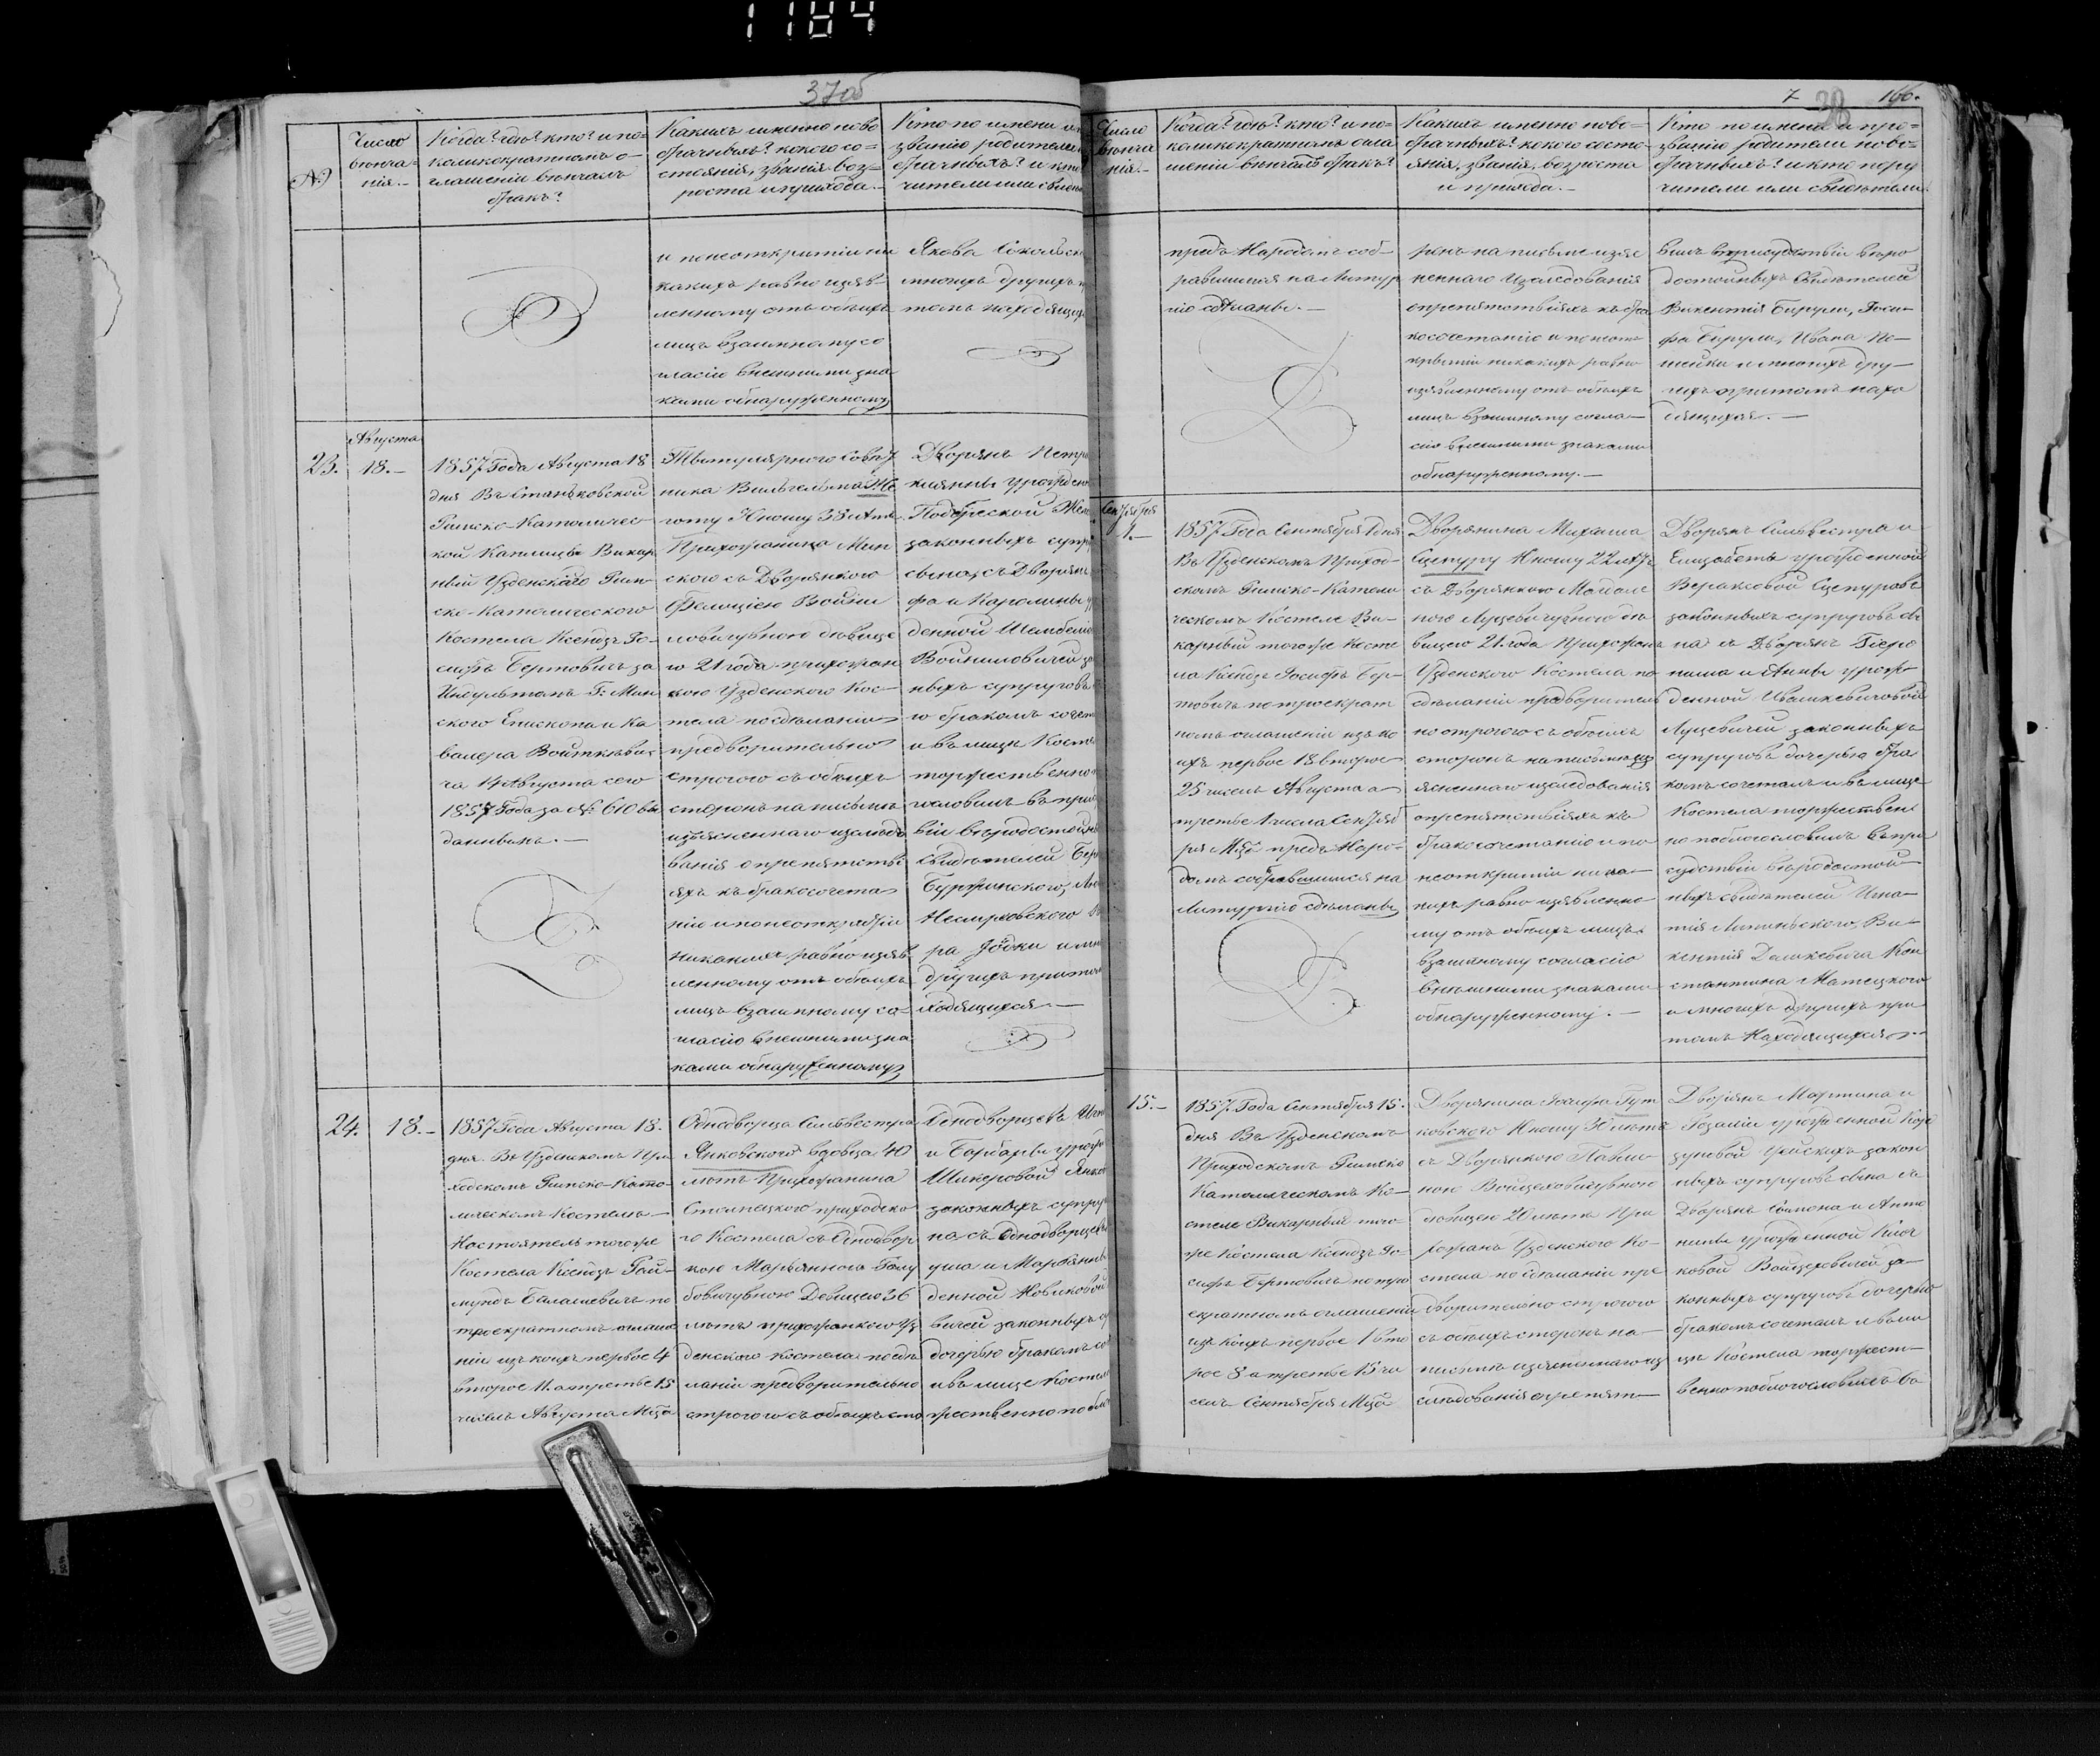 1184
37об
№
Число
вѣнча-
нія.-
Когда? гдѣ? кто? и по
коликократномъ о-
глашеніи вѣнчалъ
бракъ?
Какихъ именно ново
брачныхъ? какого со-
стоянія, званія, воз-
роста и прихода.-
Кто по имени и
званію родители
брачныхъ? и кто
чители или свидѣ
и по неоткрытіи ни
какихъ равно изъяв-
ленному отъ обѣихъ
лицъ взаимному со
гласію внешними зна
ками обнаруженному
Якова
многихъ другихъ
томъ находящих
23.
Августа
18.-
1857 Года Августа 18
дня Въ Станьковской
Римско-Католичес
кой Каплицѣ Викар
ный Узденскаго Рим
ско-Католическаго
Костела Ксендзъ Іо-
сифъ Бертовичъ за
Индультомъ Г. Мин
ского Епископа и Ка
валера Войткѣви
ча 14 Августа сего
1857 Года за № 610 вы
даннымъ.-
Титулярного Совѣт
ника Вильгельма
Юношу 38 лѣтъ
Прихожанина Мин
ского съ Дворянкою
Фелиціею Войни
ловичувною дѣвице
ю 21 года прихожан
кою Узденского Кос-
тела по сдѣланіи
предворительно
строгого съ обѣихъ
сторонъ на письмѣ
изъясненнаго изслѣдо
ванія о препятстві
яхъ къ бракосочета
нію и по неоткрытіи
никакихъ равно изъяв
ленному отъ обѣихъ
лицъ взаимному со-
гласію внешними зна
ками обнаруженному
Дворянъ Петра
урожден
законныхъ супру
сына, съ Дворян
фа и Каролины у
денной
Войниловичей за
ныхъ супруговъ
ю бракомъ сочет
и въ лицѣ Косте
торжественно
гословилъ въ при
віи вѣродостойн
свидѣтелей
Буржинского,
ра Іодки и мн
другихъ при том
ходящихся.-
24.
18.-
1857 Года Августа 18.
дня. Въ Узденскомъ При
ходскомъ Римско-Като-
лическомъ Костелѣ-
Настоятель тогоже
Костела Ксендзъ Рай-
мундъ Балашевичъ по
троекратномъ оглаше
ніи изъ коихъ первое 4
второе 11. а третье 15
числъ Августа Мца
Однодворца Сильвестра
Янковского вдовца 40
лѣтъ Прихожанина
Столпецкого приходско
го Костела съ Однодвор
кою Марьянною Голу
бовичувною Девицею 36
лѣтъ прихожанкою Уз
денского костела по сдѣ
ланіи предворительно
строгого съ обѣихъ сто
Однодворцевъ
и Барбары урожд
Янко
законныхъ супру
на съ Однодворцевъ
уша и Марьянны
денной Новиковой
вичей законныхъ су
дочерью бракомъ со
и въ лице Костел
жественно побла
7
38
166.
Число
вѣнча
нія.-
Когда? гдѣ? кто? и по-
коликократномъ огла
шеніи вѣнчалъ бракъ?
Какихъ именно ново-
брачныхъ? какого состо-
янія, званія, возроста
и прихода.-
Кто по имени и про-
званію родители ново-
брачныхъ? и кто пору
чители или свидѣтели
предъ Народомъ соб-
равшимся на Литур
гію сдѣланы.-
ронъ на письме изъяс
неннаго Изслѣдованія
о препятствіяхъ къ бра
косочетанію и по неот
крытіи никакихъ равно
изъявленному отъ обѣихъ
лицъ взаимному согла-
сію внешними знаками
обнаруженному.-
вилъ въ присудствіи вѣро
достойныхъ Свидѣтелей
Викентія Бирули, Іоси-
фа Бирули, Ивана По-
и многихъ дру-
гихъ при томъ нахо
дящихся.-
Сентября
1.-
1857 Года Сентября 1 дня
Въ Узденскомъ Приход-
скомъ Римско-Католи
ческомъ Костелѣ Ви-
карный тогоже Косте
ла Ксендзъ Іосифъ Бер-
товичъ по троекрат
номъ оглашеніи изъ ко
ихъ первое 18 второе
25 числъ Августа а
третье 1 числа Сентяб
ря Мца предъ Наро-
домъ собравшимся на
Литургію сдѣланы
Дворянина Михаила
Сцепуру Юношу 22 лѣтъ
съ Дворянкою Магдале
ною Луцевичувною дѣ
вицею 21. года Прихожан
Узденского Костела по
сдѣланіи предворитель
но строгого съ обѣихъ
сторонъ на письмѣ изъ
ясненнаго изслѣдованія
о препятствіяхъ къ
бракосочетанію и по
неоткрытіи ника-
кихъ равно изъявленно
му отъ обѣихъ лицъ
взаимному согласію
внѣшними знаками
обнаруженному.-
Дворянъ Сильвестра и
Елисаветы урожденной
Вераксовой Сцепуровъ
законныхъ супруговъ сы
на съ Дворянъ Іеро
нима и Анны урож-
денной Ивашкевичовой
Луцевичей законныхъ
супруговъ дочерью бра
комъ сочеталъ и въ лице
Костела торжествен
но поблагословилъ въ при
судствіи вѣродостой-
ныхъ свидѣтелей Игна-
тія Липинского, Ви-
кентія Дашкевича Кон
стантина Матецкого
и многихъ другихъ при
томъ Находящихся.-
15.-
1857. Года Сентября 15.
дня Въ Узденскомъ
Приходскомъ Римско
Католическомъ Ко-
стелѣ Викарный того
же Костела Ксендзъ Іо-
сифъ Бертовичъ по тро
екратномъ оглашеніи
изъ коихъ первое 1 вто
рое 8 а третье 15 чи
селъ Сентября Мца
Дворянина Іосифа Гут
ковского Юношу 30 лѣтъ
съ Дворянкою Павли-
ною Войцеховичувною
дѣвицею 20 лѣтъ При
хожанъ Узденского Ко-
стела по сдѣланіи пре
дворительно строгого
съ обѣихъ сторонъ на-
письмѣ изъясненнаго из
слѣдованія о препят-
Дворянъ Мартина и
урожденной
закон
ныхъ супруговъ сына съ
Дворянъ Симона и Анто
нины урожденной
Войцеховичей за-
конныхъ супруговъ дочерью
бракомъ сочеталъ и въ ли
цѣ Костела торжест-
венно поблагословилъ въ